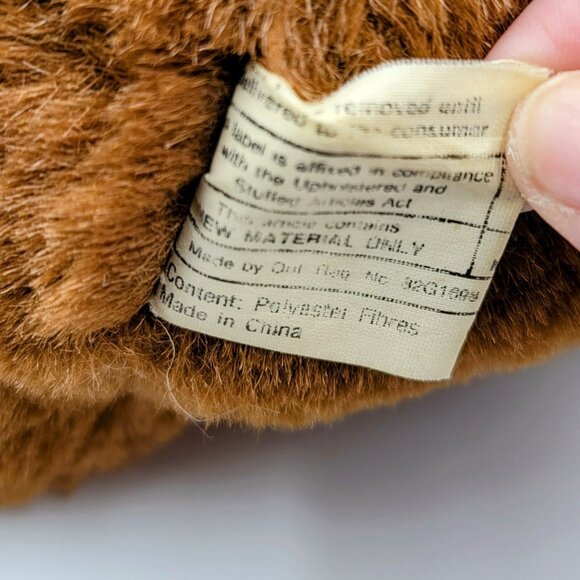 removed until
delivered to the consumer
label is affixed in compliance
with the Upholstered and
Stuffed Articles Act
This article contains
NEW MATERIAL ONLY
Made by Ont Reg No
Content: Polyester Fibres
Made in China